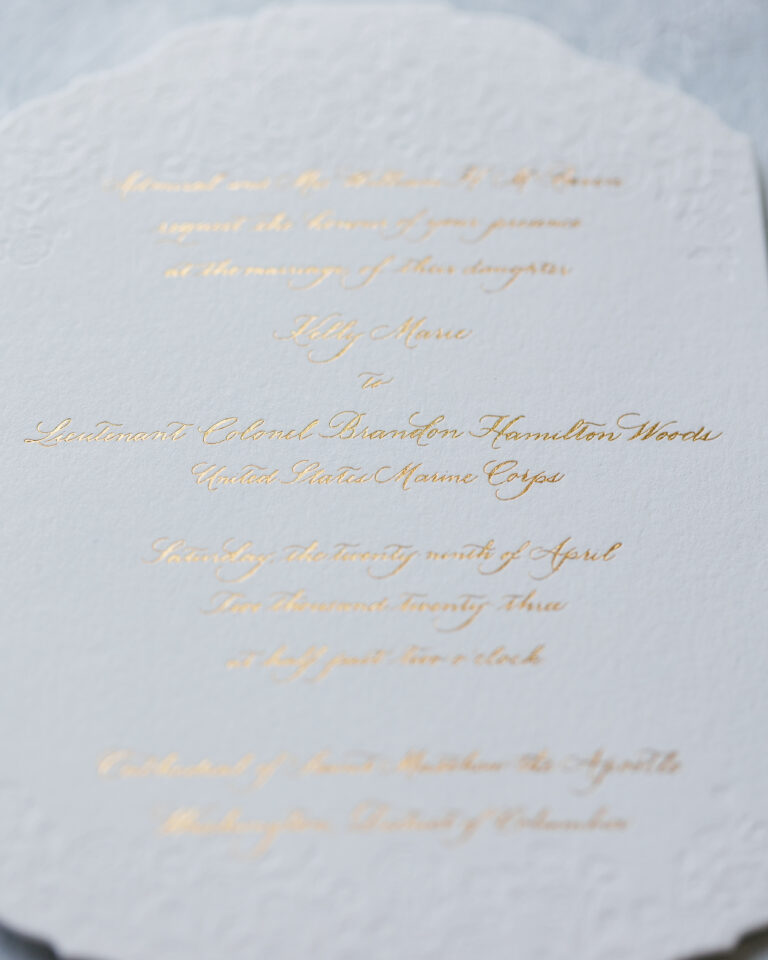 Admiral and Mrs William H
request the honour of your presence
at the marriage of their daughter
Kelly Marie
to
Lieutenant Colonel Brandon Hamilton Woods
United States Marine Corps
Saturday, the twenty ninth of April
Two thousand twenty three
at half past two o'clock
Cathedral of Saint Matthew the Apostle
Washington, District of Columbia